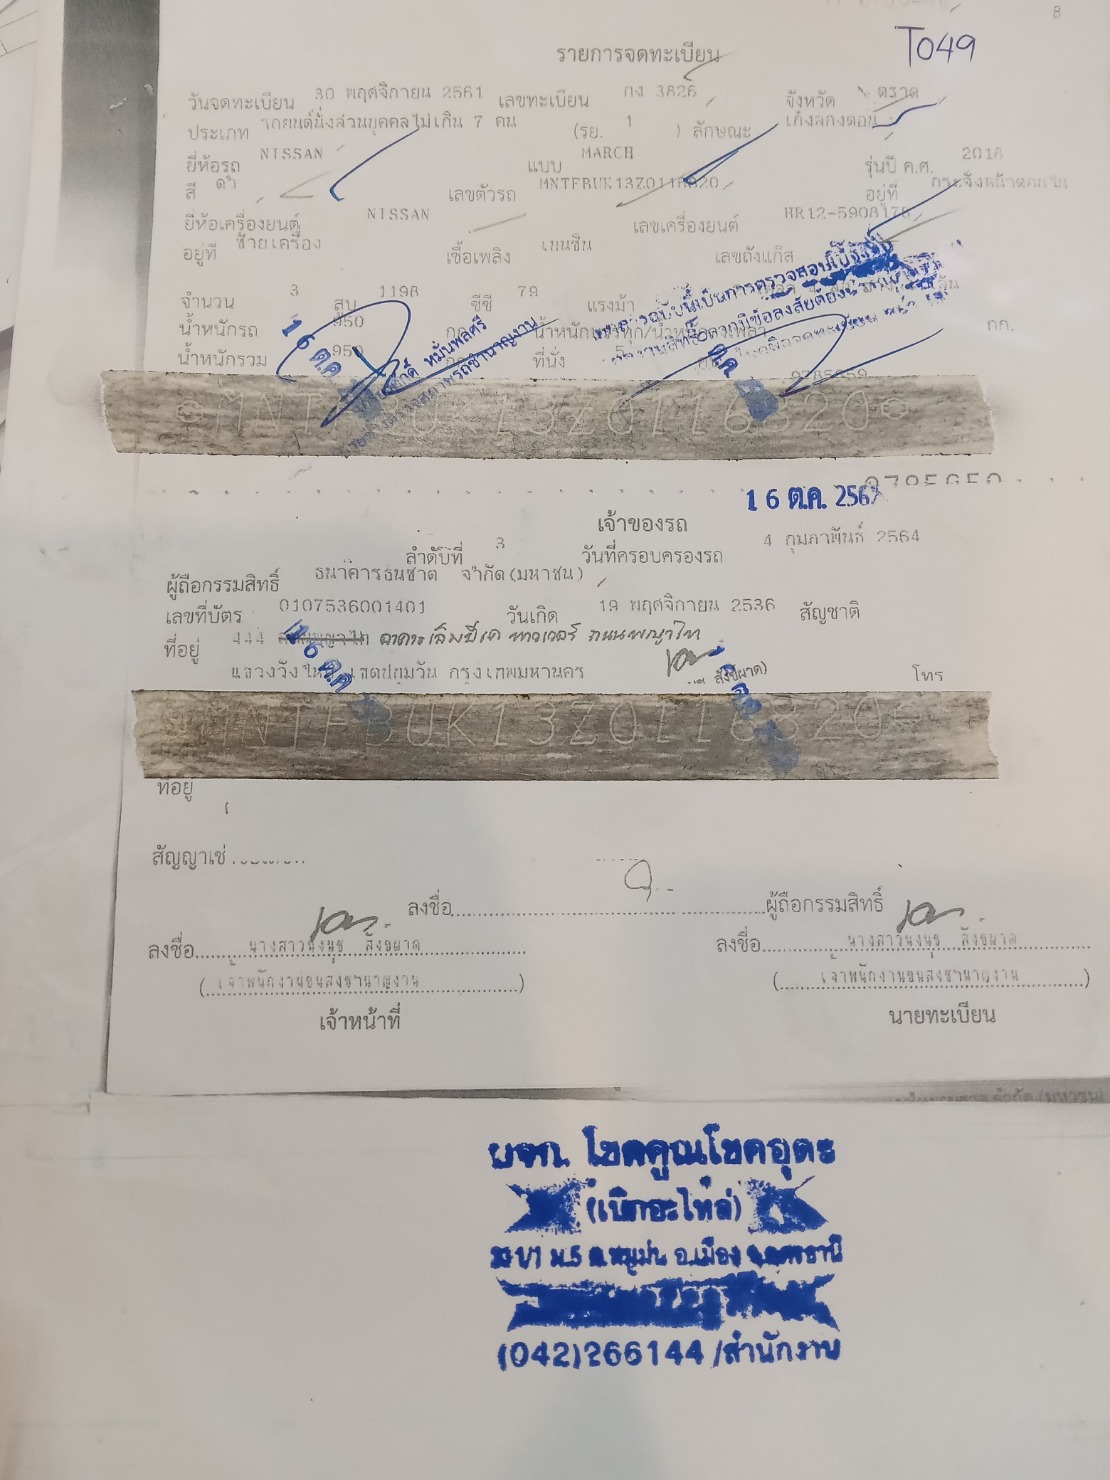 8
T049
รายการจดทะเบียน
วันจดทะเบียน 30 พฤศจิกายน 2561 เลขทะเบียน กง 3826 จังหวัด ตราด
ประเภท รถยนต์นั่งส่วนบุคคลไม่เกิน 7 คน (รย. 1 ) ลักษณะ เก๋งสองตอน
ยี่ห้อรถ NISSAN แบบ MARCH รุ่นปี ค.ศ. 2018
สี ดำ เลขตัวรถ MNTFBUK13Z0116320 อยู่ที่
ยี่ห้อเครื่องยนต์ NISSAN เลขเครื่องยนต์
อยู่ที่ ซ้ายเครื่อง เชื้อเพลิง เบนซิน เลขถังแก๊ส
จำนวน 3 สูบ 1198 ซีซี 79 แรงม้า
น้ำหนักรถ 950 กก. น้ำหนักบรรทุก/น้ำหนักลงเพลา กก.
น้ำหนักรวม 950 ที่นั่ง 5
16 ต.ค.
หมั่นพลศรี
MNTFBUK13Z0116320
16 ต.ค. 256
เจ้าของรถ
ลำดับที่ 3 วันที่ครอบครองรถ 4 กุมภาพันธ์ 2564
ผู้ถือกรรมสิทธิ์ ธนาคารธนชาต จำกัด(มหาชน)
เลขที่บัตร 0107536001401 วันเกิด 19 พฤศจิกายน 2536 สัญชาติ
ที่อยู่ 444 อาคารเอ็มบีเค ทาวเวอร์ ถนนพญาไท
แขวงวังใหม่ เขตปทุมวัน กรุงเทพมหานคร โทร
16 ต.ค.
MNTFBUK13Z0116320
ที่อยู่
สัญญาเช่
ลงชื่อ ผู้ถือกรรมสิทธิ์
ลงชื่อ นางสาวนงนุช สังขผาด ลงชื่อ นางสาวนงนุช สังขผาด
(เจ้าพนักงานขนส่งชำนาญงาน) (เจ้าพนักงานขนส่งชำนาญงาน)
เจ้าหน้าที่ นายทะเบียน
จำกัด (มหาชน)
หจก. โชคคูณโชคอุดร
(เบิกอะไหล่)
ม.5 ต.หมูม่น อ.เมือง จ.อุดรธานี
(042)266144/สำนักงาน